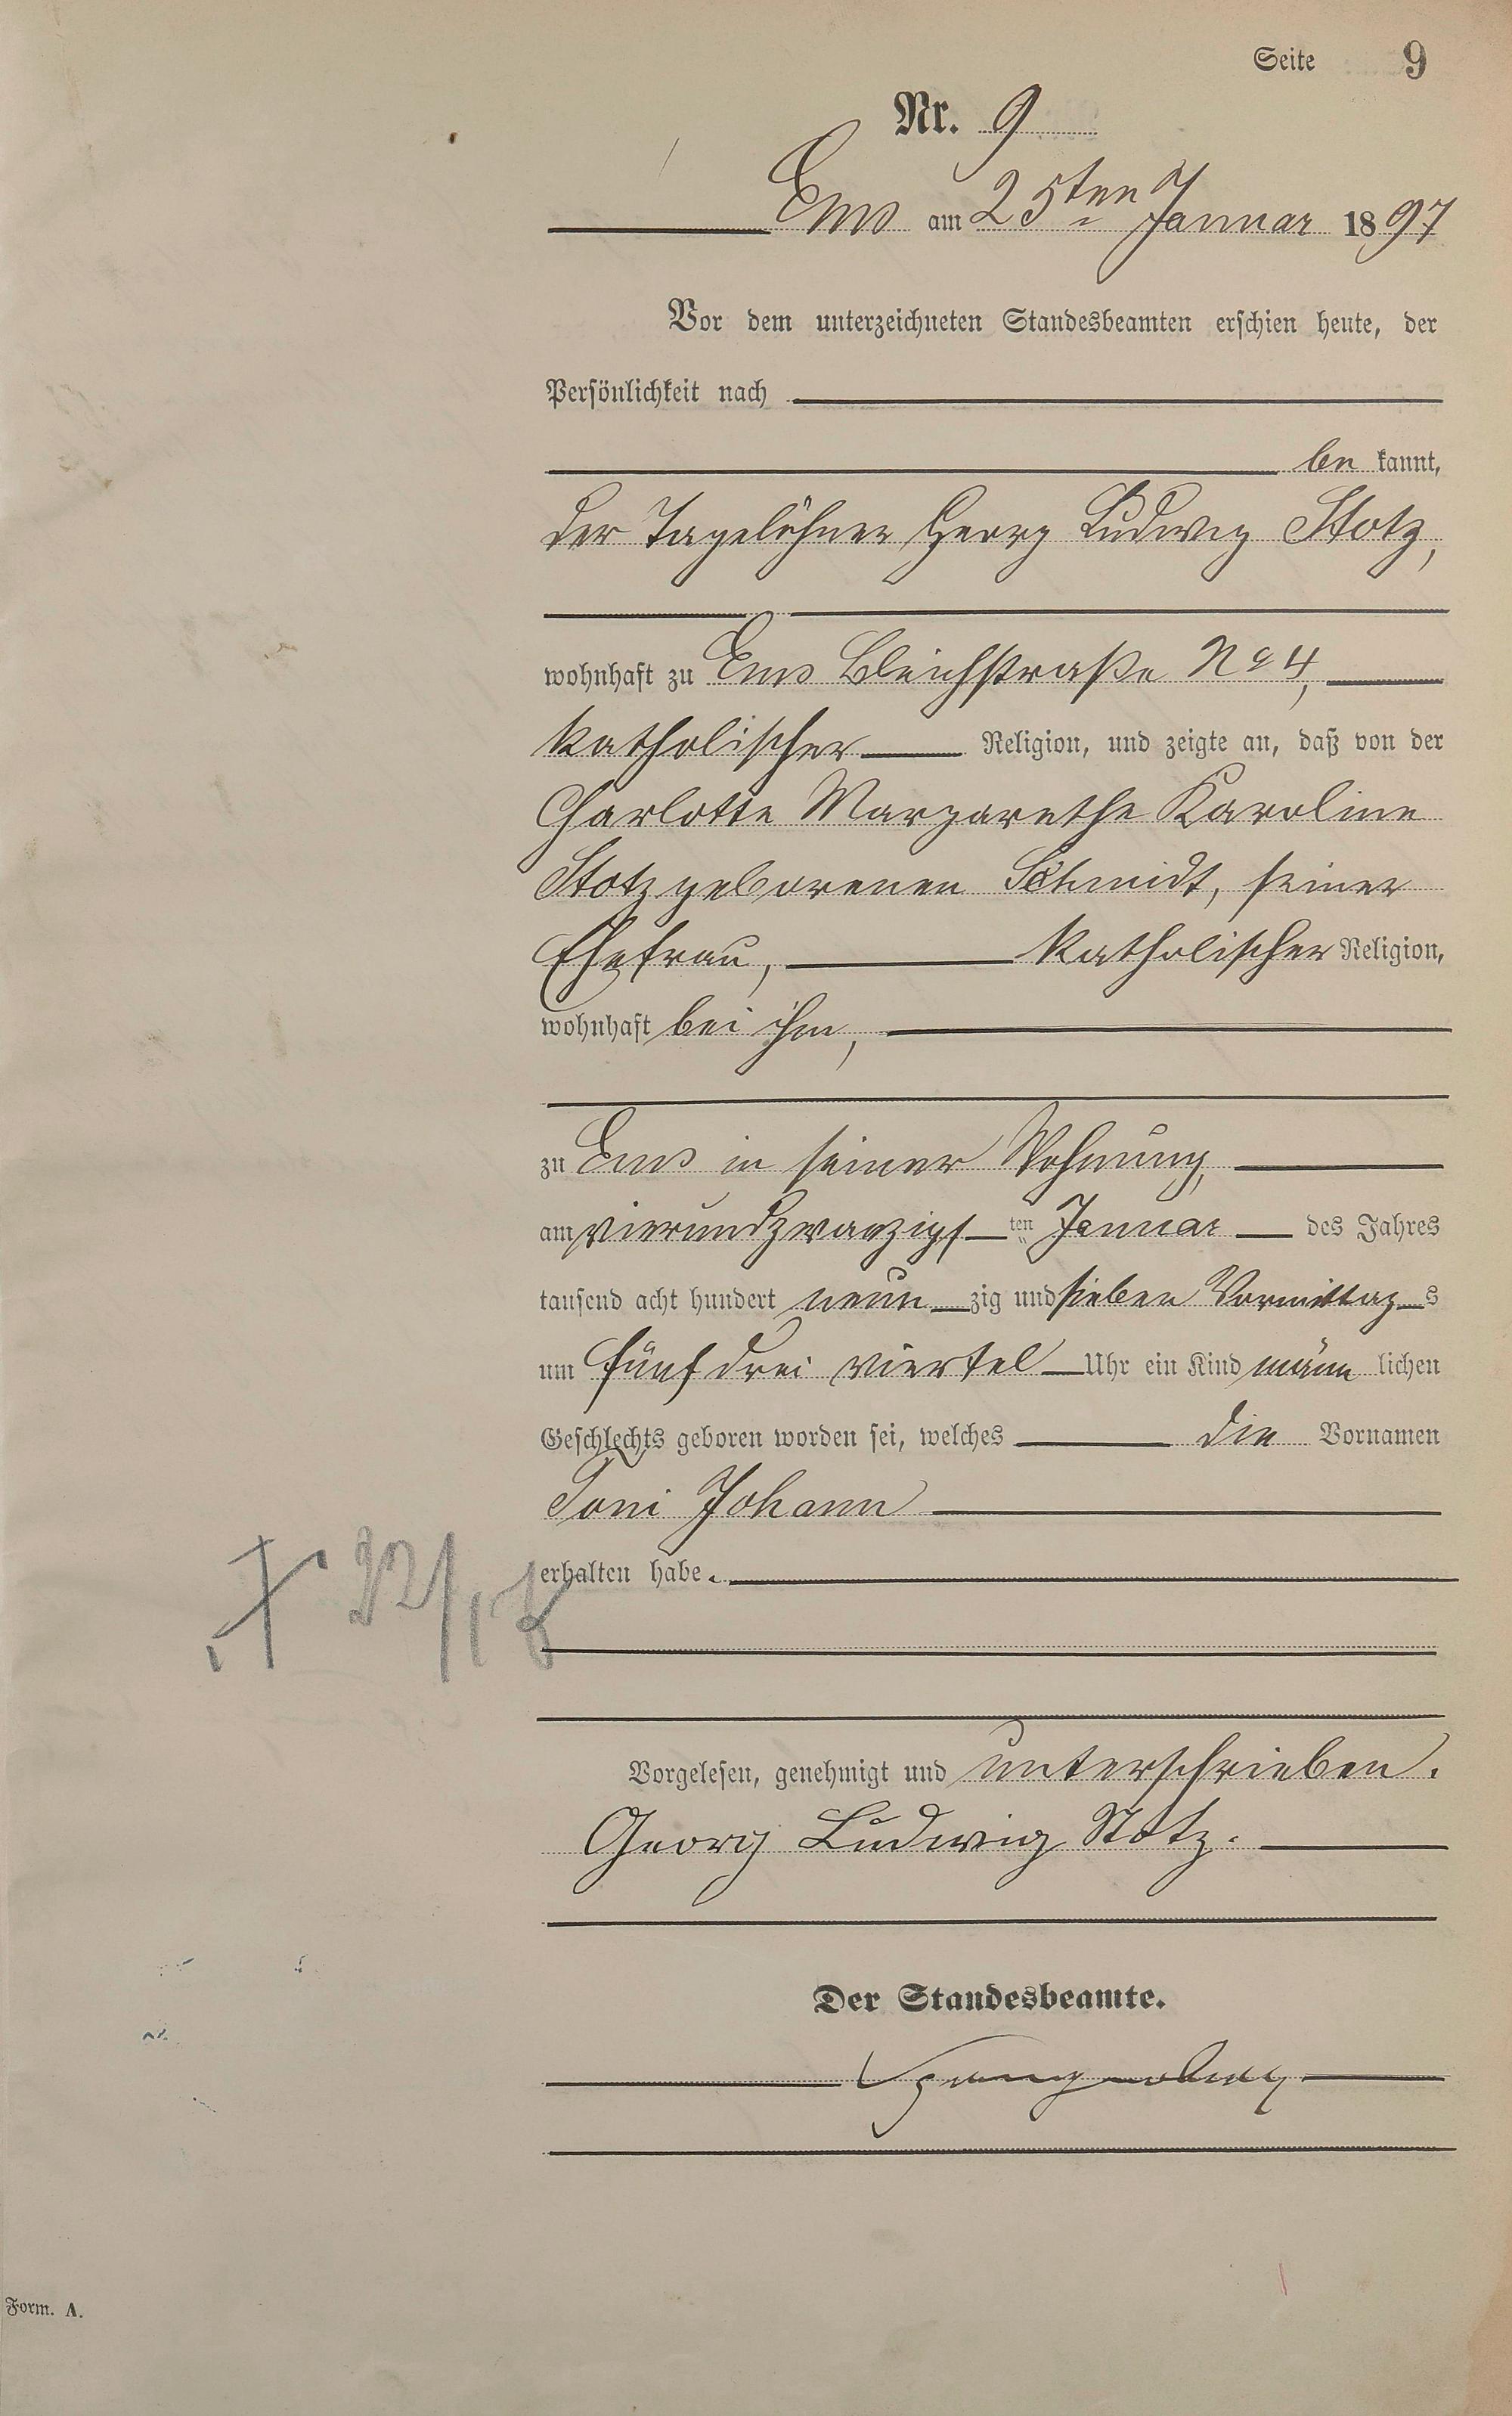 Seite 9
Nr. 9
Ems am 25ten Januar 1897
Vor dem unterzeichneten Standesbeamten erschien heute, der
Persönlichkeit nach
be kannt,
der Tagelöhner Georg Ludwig Stotz,
wohnhaft zu Ems Bleichstraße No 4,
katholischer Religion, und zeigte an, daß von der
Charlotte Margarethe Karoline
Stotz geborenen Schmidt, seiner
Ehefrau, katholischer Religion,
wohnhaft bei ihm,
zu Ems in seiner Wohnung,
am vierundzwanzigs ten Januar des Jahres
tausend acht hundert neun zig und sieben Vormittag s
um fünf drei viertel Uhr ein Kind männ lichen
Geschlechts geboren worden sei, welches die Vornamen
Toni Johann
erhalten habe.
Vorgelesen, genehmigt und unterschrieben.
Georg Ludwig Stotz.
Der Standesbeamte.
Form. A.